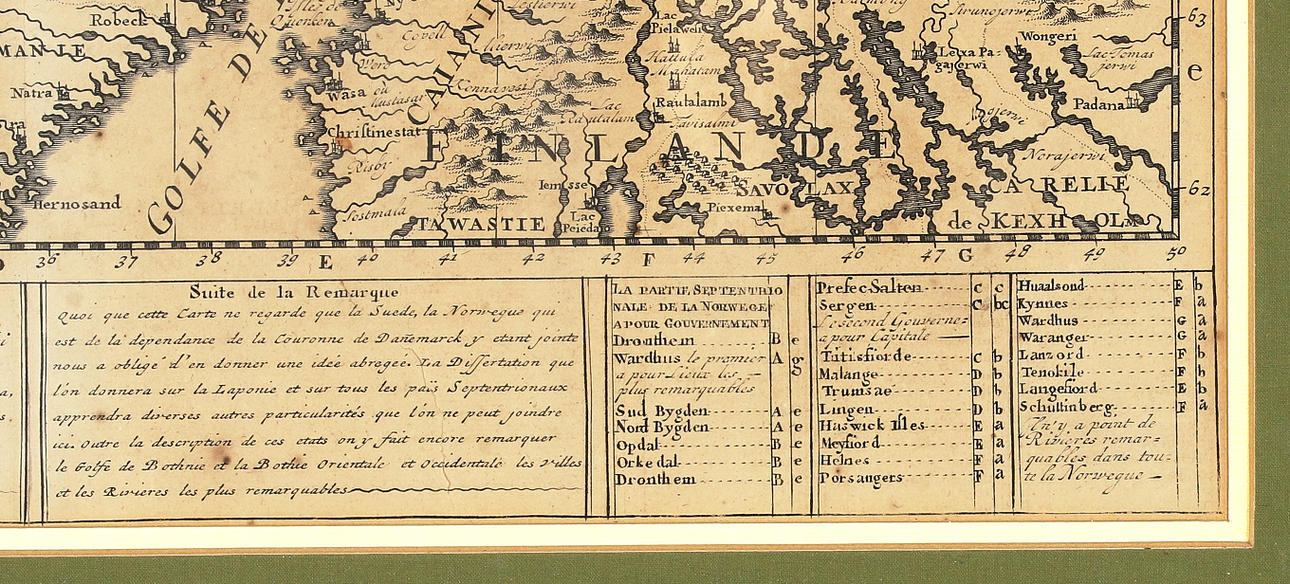 Robeck
MANIE
Natra
Hernosand
GOLFE DE
Wasa ou
Mustasar
Christinestat
CAIANI
Lac
Pielawesi
Rautalamb
Lac
FINLANDE
SAVOLAX
Piexema
TAWASTIE
Lac
Wongeri
Lac Tomas
jerwi
Leixa Pa-
gajerwi
Padana
Norajerwi
CARELIE
de KEXHOLM
63
e
62
36 37 38 39 E 40 41 42 43 F 44 45 46 47 G 48 49 50
Suite de la Remarque
Quoi que cette Carte ne regarde que la Suede, la Norwegue qui
est de la dépendance de la Couronne de Danemarck y etant jointe
nous a obligé d'en donner une idée abregée. La Dissertation que
l'on donnera sur la Laponie et sur tous les païs Septentrionaux
apprendra diverses autres particularités que l'on ne peut joindre
ici. outre la description de ces etats on y fait encore remarquer
le Golfe de Bothnie et la Bothie Orientale et Occidentale les Villes
et les Rivieres les plus remarquables
LA PARTIE SEPTENTRIO
NALE DE LA NORWEGE
A POUR GOUVERNEMENT
Dronthem B e
Wardhus le premier A g
a pour Lieux les
plus remarquables
Sud Bygden A e
Nord Bygden A e
Opdal B e
Orkedal B e
Dronthem B e
Prefec-Salten C c
Sergen C bc
Le second Gouverne=
a pour Capitale
Titisfiorde C b
Malange D b
Trumsae D b
Lingen D b
Haswick Isles E a
Meyfiord E a
Helnes F a
Porsangers F a
Huaalsond E b
Kynnes F a
Wardhus G a
Waranger G a
Lanzord F b
Tenokile F b
Langefiord E b
Schuttinberg F a
Il n'y a point de
Rivieres remar=
quables dans tou=
te la Norwegue